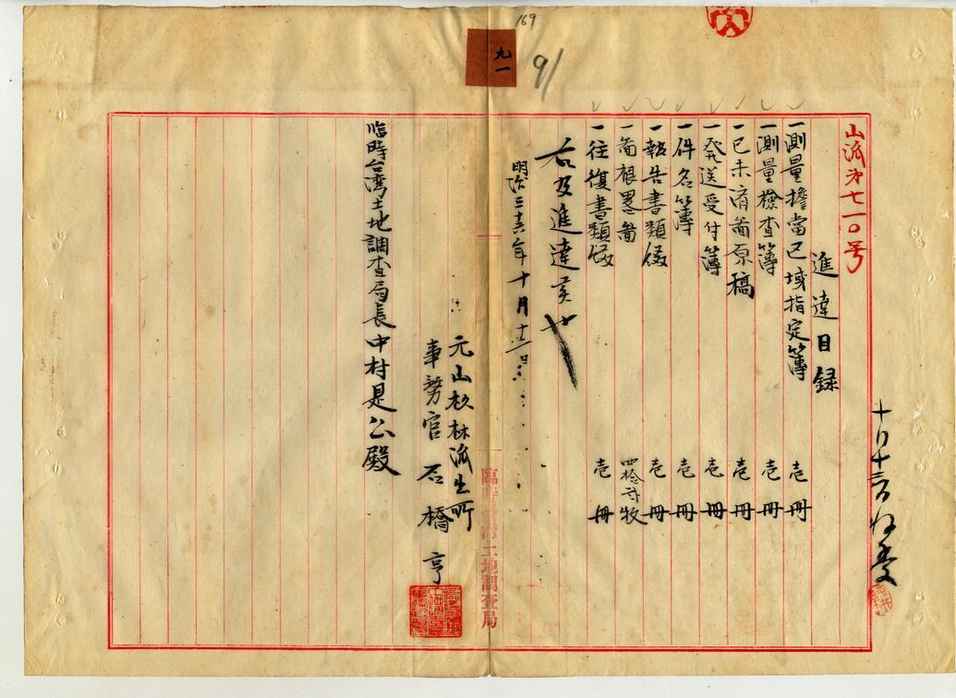 169
九一
91
山派第七一〇号
進達目録
一測量擔当区域指定簿 壱冊
一測量検査簿 壱冊
一已未済図原稿 壱冊
一発送受付簿 壱冊
一件名簿 壱冊
一報告書類綴 壱冊
一図根略図 枚
一往復書類綴 壱冊
右及進達候也
明治三十六年十月十二日
元山杉林派出所
事務官 石橋 亨
臨時台湾土地調査局長中村是公殿
十月十三日
臨時台湾土地調査局